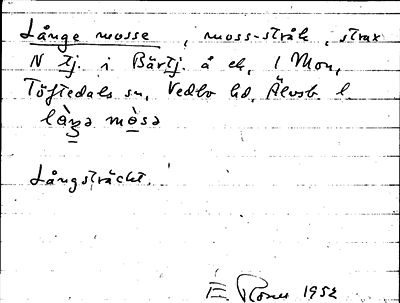 Långe mosse, moss-stråk, strax
N tj. i Bärtj. å ek, 1 Mon,
Töftedals sn, Vedbo hd, Älvsb. l
làŋə mòsə
Långsträckt.
E 1952